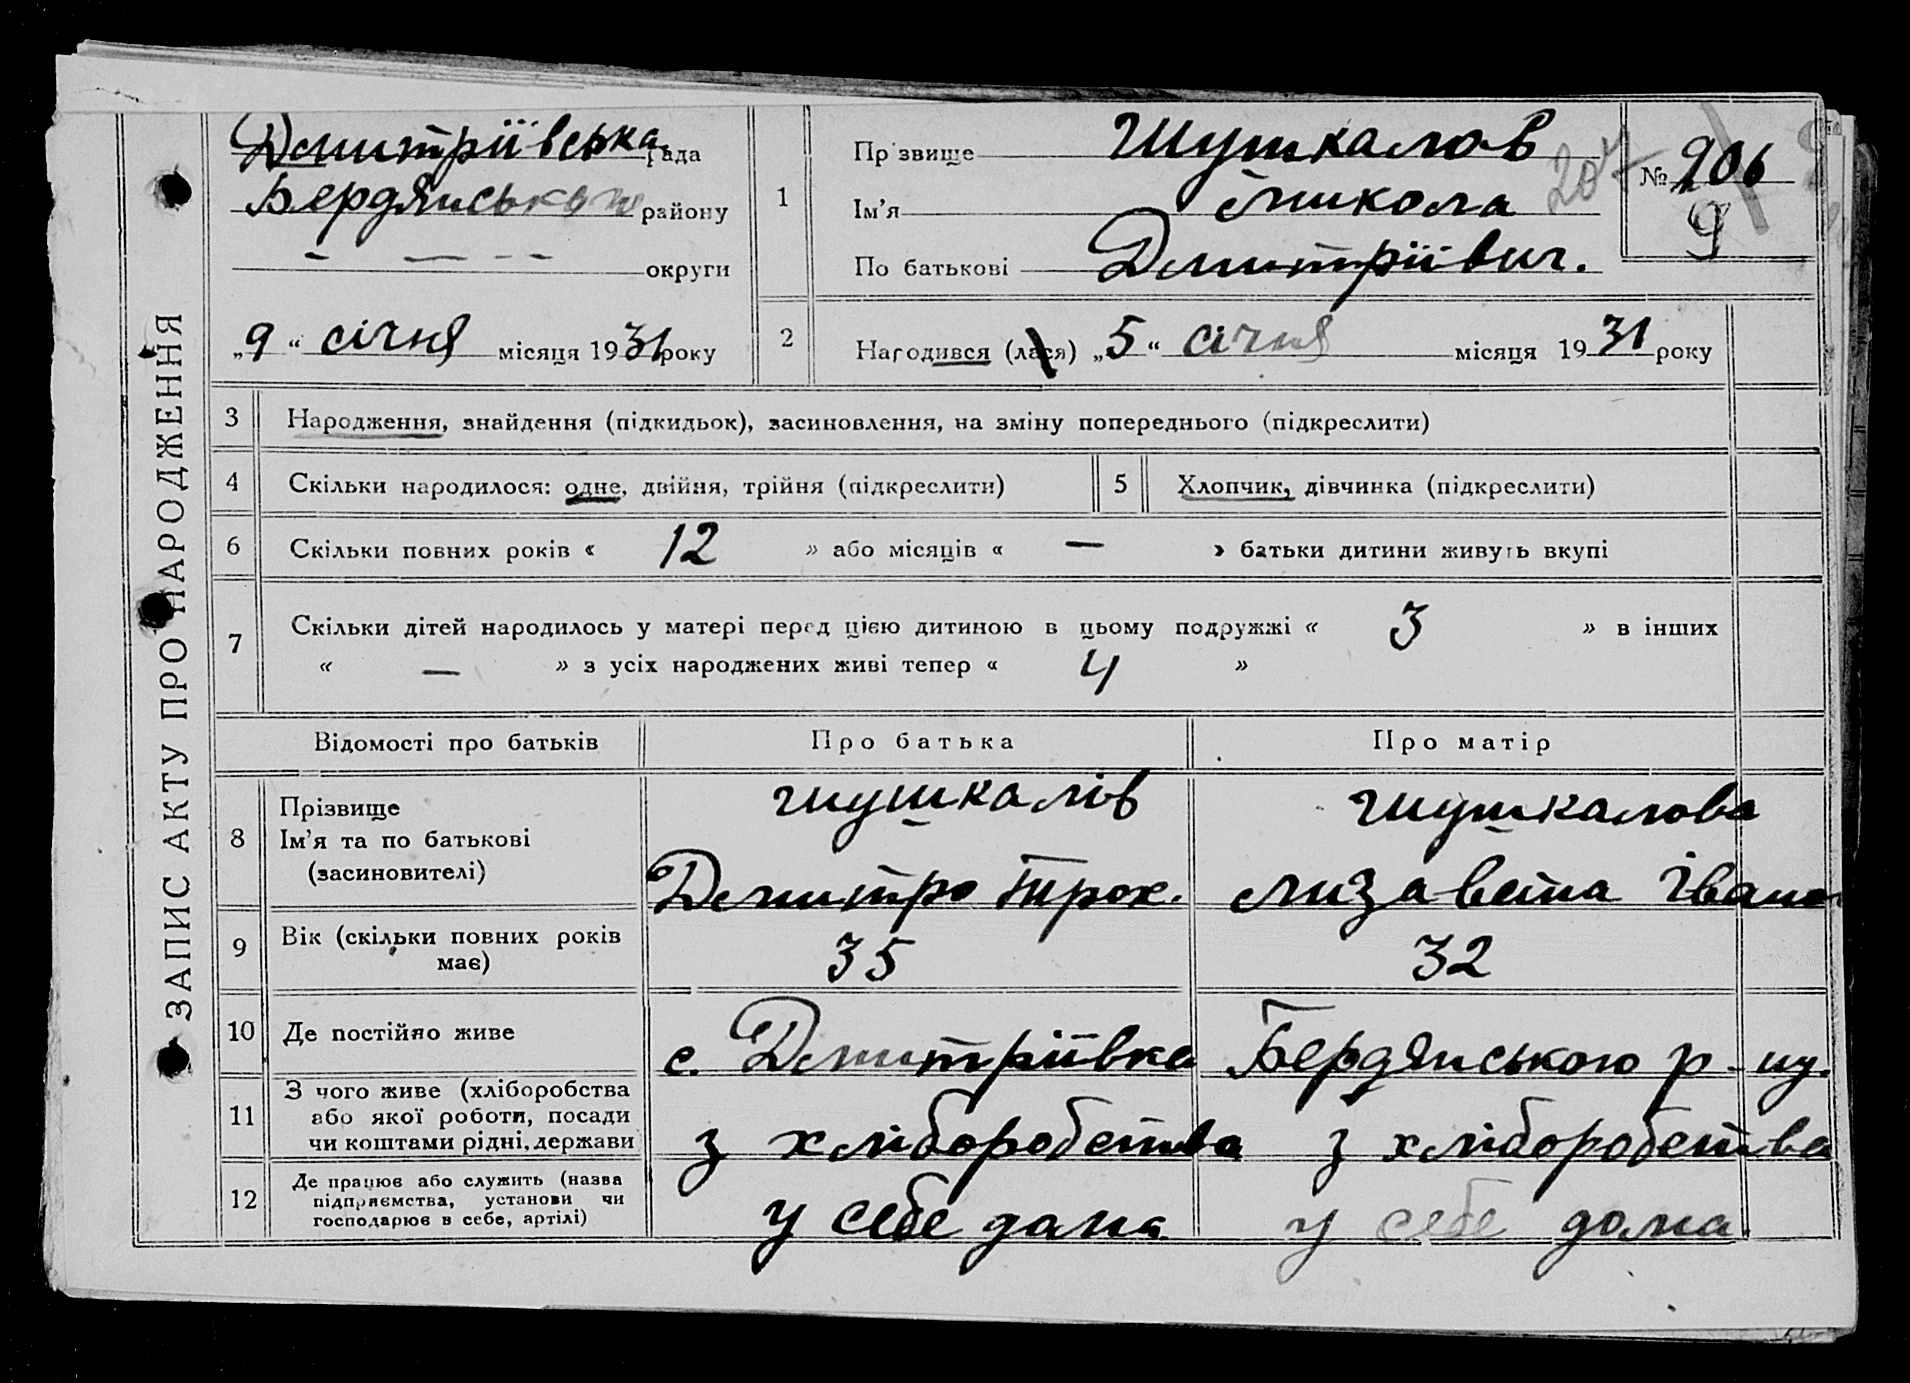 ЗАПИС АКТУ ПРО НАРОДЖЕННЯ
Дмитріївська рада
Бердянського району
— — — — округи
„9“ січня місяця 1931 року
1
Прізвище Шушкалов
Ім'я Микола
По батькові Дмитріївич.
207
№ 206
9
2
Народився (лася) „5“ січня місяця 1931 року
3 Народження, знайдення (підкидьок), засиновлення, на зміну попереднього (підкреслити)
4 Скільки народилося: одне, двійня, трійня (підкреслити) 5 Хлопчик, дівчинка (підкреслити)
6 Скільки повних років « 12 » або місяців « — » батьки дитини живуть вкупі
7 Скільки дітей народилось у матері перед цією дитиною в цьому подружжі « 3 » в інших
« — » з усіх народжених живі тепер « 4 »
Відомості про батьків Про батька Про матір
8 Прізвище
Ім'я та по батькові
(засиновителі)
Шушкалів
Дмитро Трох.
Шушкалова
Лизавета Івано
9 Вік (скільки повних років
має)
35 32
10 Де постійно живе с. Дмитріївка Бердянського р-ну.
11 З чого живе (хліборобства
або якої роботи, посади
чи коштами рідні, держави
з хліборобства з хліборобства
12 Де працює або служить (назва
підприємства, установи чи
господарює в себе, артілі)
у себе дома у себе дома.